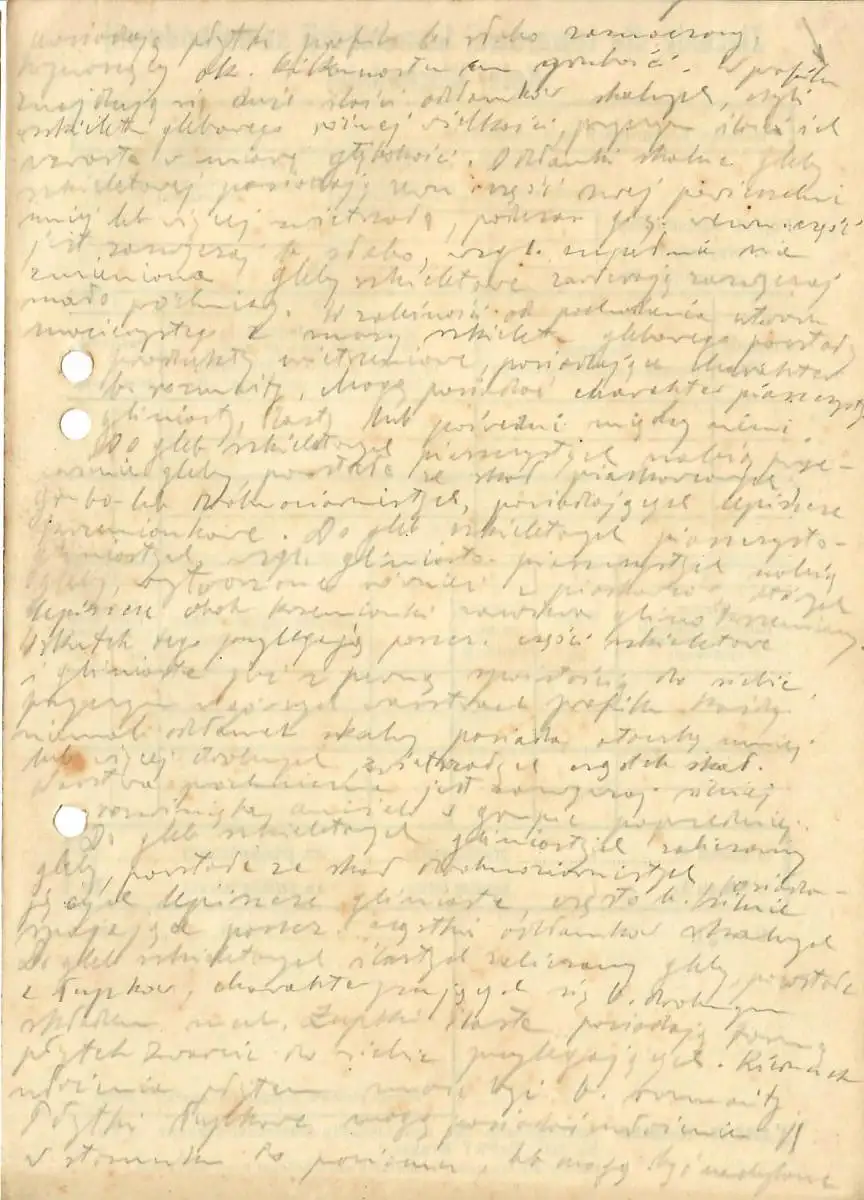 posiadają płytki profil b. słabo zaznaczony,
wynoszący ok. kilkunastu cm grubości. W profilu
znajdują się duże ilości odłamków skalnych, czyli
szkieletu glebowego różnej wielkości, przyczym ilość ich
wzrasta w miarę głębokości. Odłamki skalne gleby
szkieletowej posiadają zewn. część swej powierzchni
mniej lub więcej zwietrzałą, podczas gdy wewn. część
jest zazwyczaj b. słabo, wzgl. zupełnie nie
zmieniona gleby szkieletowe zawierają zazwyczaj
mało próchnicy. W zależności od pochodzenia utworu
macierzystego z masy szkieletu glebowego powstają
produkty wietrzeniowe, posiadające charakter
b. rozmaity. Mogą posiadać charakter piaszczysty
gliniasty, ilasty lub pośredni między nimi
Do gleb szkieletowych piaszczystych należą prze-
ważnie gleby, powstałe ze skał piaskowcowych
grubo- lub drobnoziarnistych, posiadających lepiszcze
krzemionkowe. Do gleb szkieletowych piaszczysto-
gliniastych, wzgl. gliniasto-piaszczystych należą
gleby, wytworzone również z piaskowców, których
lepiszcze obok krzemionki zawiera glinokrzemiany.
Wskutek tego przylegają poszcz. części szkieletowe
i gliniaste już z pewną spoistością do siebie,
przyczym w górnych warstwach profilu każdy
niemal odłamek skalny posiada otoczkę mniej
lub więcej drobnych, zwietrzałych cząstek skał.
Warstwa próchniczna jest zazwyczaj silniej
rozwinięta, aniżeli w grupie poprzedniej.
Do gleb szkieletowych gliniastych zaliczamy
gleby, powstałe ze skał drobnoziarnistych, posiada-
jących lepiszcze gliniaste, często b. silnie
spajające poszcz. cząstki odłamków skalnych
Do gleb szkieletowych ilastych zaliczamy gleby, powstałe
z łupków, charakteryzujących się b. drobnym
składem mech. Łupki ilaste posiadają formę
płytek zwarcie do siebie przylegających. Kierunek
ułożenia płytek może być b. rozmaity
Płytki łupkowe mogą posiadać ułożenie ||
w stosunku do poziomu, lub mogą być nachylone